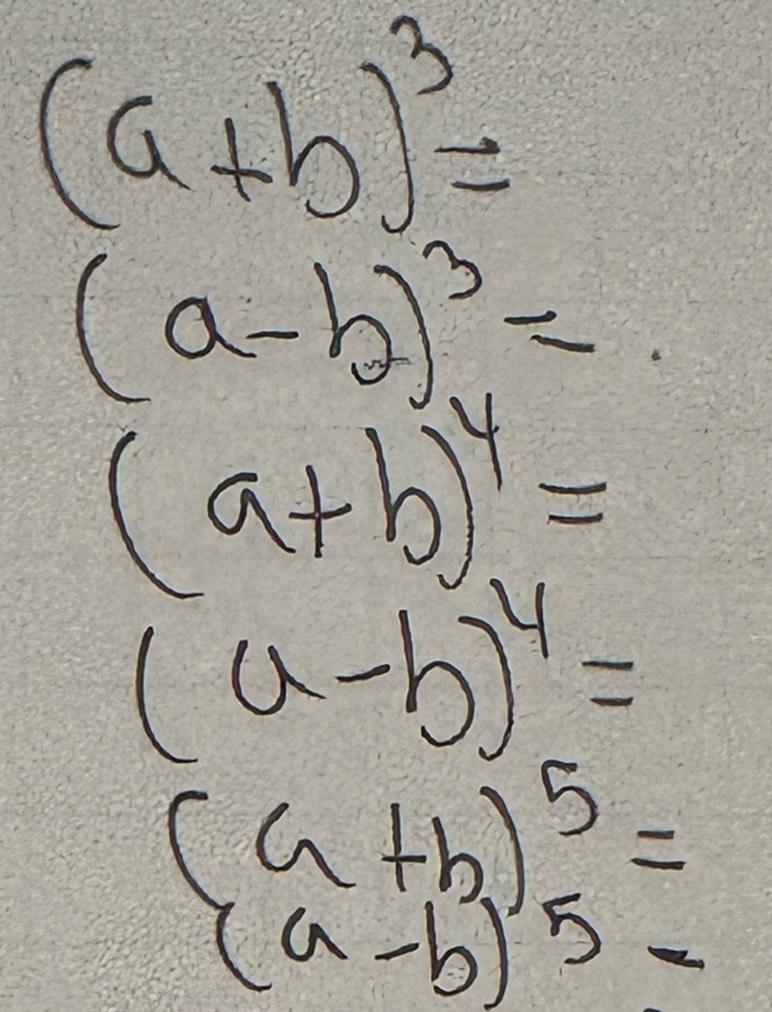 (a+b)³=
(a-b)³=
(a+b)⁴=
(a-b)⁴=
(a+b)⁵=
(a-b)⁵-